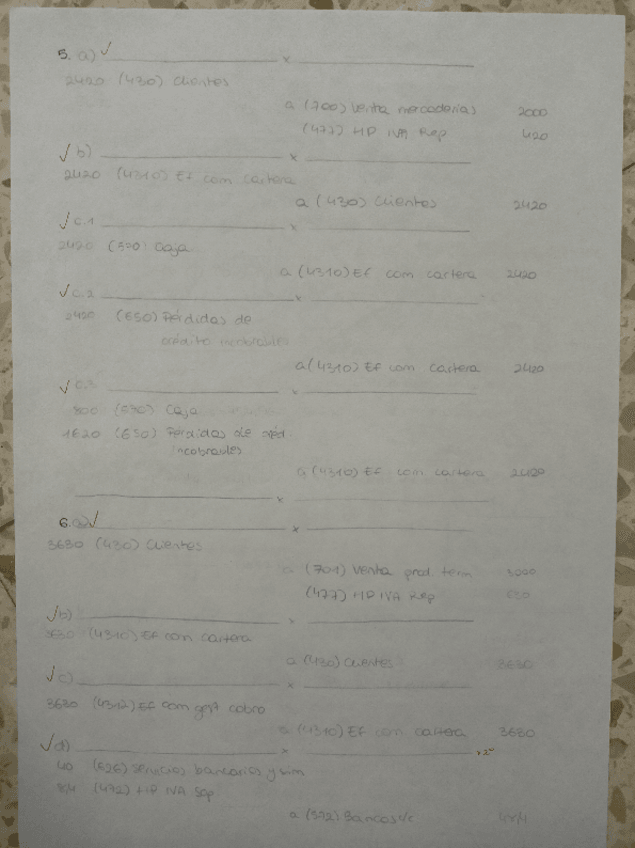 5. a) ✓ x
2420 (430) Clientes
a (700) Venta mercaderías 2000
(477) HP IVA Rep 420
✓ b) x
2420 (4310) Ef com cartera
a (430) Clientes 2420
✓ c.1 x
2420 (570) Caja
a (4310) Ef com cartera 2420
✓ c.2 x
2420 (650) Pérdidas de
crédito incobrables
a (4310) Ef com cartera 2420
✓ c.3 x
800 (570) Caja
1620 (650) Pérdidas de créd.
incobrables
a (4310) Ef com cartera 2420
x
6. a) ✓ x
3630 (430) Clientes
a (701) Venta prod. term 3000
(477) HP IVA Rep 630
✓ b) x
3630 (4310) Ef com cartera
a (430) Clientes 3630
✓ c) x
3630 (4312) Ef com gest cobro
a (4310) Ef com cartera 3630
✓ d) x
40 (626) Servicios bancarios y sim
8,4 (472) HP IVA Sop
a (572) Bancos c/c 48,4